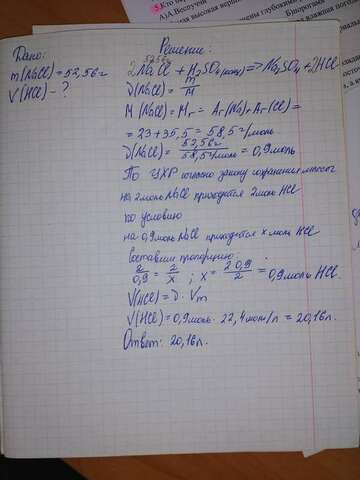 5. Кто бы
А)А.Веспуччи
Дано:
Решение:
m(NaCl)=52,56г
V(HCl) - ?
52,56г
2NaCl + H₂SO₄(конц) => Na₂SO₄ + 2HCl
ν(NaCl) = m/M
M(NaCl) = Mr = Ar(Na) + Ar(Cl) =
= 23 + 35,5 = 58,5 г/моль
ν(NaCl) = 52,56г/58,5 г/моль = 0,9 моль
По УХР согласно закону сохранения
на 2моль NaCl приходится 2моль HCl
по условию
на 0,9моль NaCl приходится x моль HCl
Составим пропорцию:
2/0,9 = 2/x ; x = 2·0,9/2 = 0,9моль HCl.
V(HCl) = ν · Vm
V(HCl) = 0,9моль · 22,4моль/л = 20,16л.
Ответ: 20,16л.